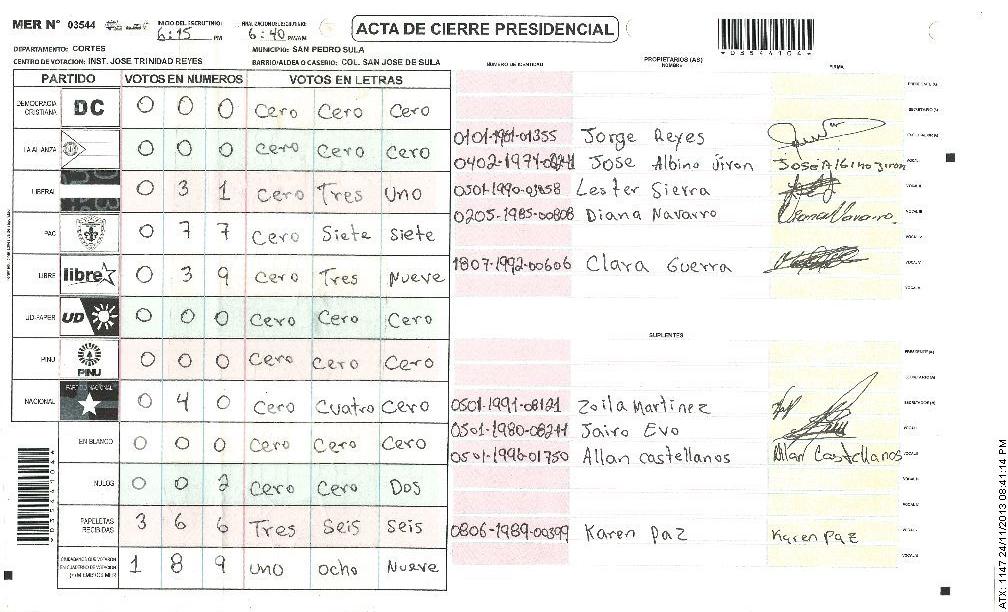 MER N° 03544 INICIO DEL ESCRUTINIO: 6:15 PM FINALIZACION DEL ESCRUTINIO: 6:40 PM/AM
ACTA DE CIERRE PRESIDENCIAL
*0354104*
DEPARTAMENTO: CORTES MUNICIPIO: SAN PEDRO SULA
CENTRO DE VOTACION: INST. JOSE TRINIDAD REYES BARRIO/ALDEA O CASERIO: COL. SAN JOSE DE SULA
PARTIDO VOTOS EN NUMEROS VOTOS EN LETRAS
DEMOCRACIA CRISTIANA DC 0 0 0 Cero Cero Cero
LA ALIANZA 0 0 0 Cero Cero Cero
LIBERAL 0 3 1 Cero Tres Uno
PAC 0 7 7 Cero Siete Siete
LIBRE libre 0 3 9 Cero Tres Nueve
UD-FAPER UD 0 0 0 Cero Cero Cero
PINU PINU 0 0 0 Cero Cero Cero
NACIONAL PARTIDO NACIONAL 0 4 0 Cero Cuatro Cero
EN BLANCO 0 0 0 Cero Cero Cero
NULOS 0 0 2 Cero Cero Dos
PAPELETAS RECIBIDAS 3 6 6 Tres Seis Seis
CIUDADANOS QUE VOTARON EN CUADERNO DE VOTACION (+) MIEMBROS MER 1 8 9 uno ocho Nueve
*0354104*
PROPIETARIOS (AS)
NUMERO DE IDENTIDAD NOMBRE FIRMA
PRESIDENTE (A)
SECRETARIO (A)
0101-1961-01355 Jorge Reyes ESCRUTADOR (A)
Jose Albino Jiron Jose Albino Jiron VOCAL I
Lester Sierra VOCAL II
0205-1985-00808 Diana Navarro Diana Navarro VOCAL III
VOCAL IV
1807-1992-00606 Clara Guerra VOCAL V
VOCAL VI
SUPLENTES
PRESIDENTE (A)
SECRETARIO (A)
0501-1991-08121 Zoila Martinez ESCRUTADOR (A)
Jairo Evo VOCAL I
0501-1996-01750 Allan Castellanos Allan Castellanos VOCAL II
VOCAL III
VOCAL IV
0806-1989-00399 Karen Paz Karen Paz VOCAL V
VOCAL VI
ATX: 1147 24/11/2013 08:41:14 PM